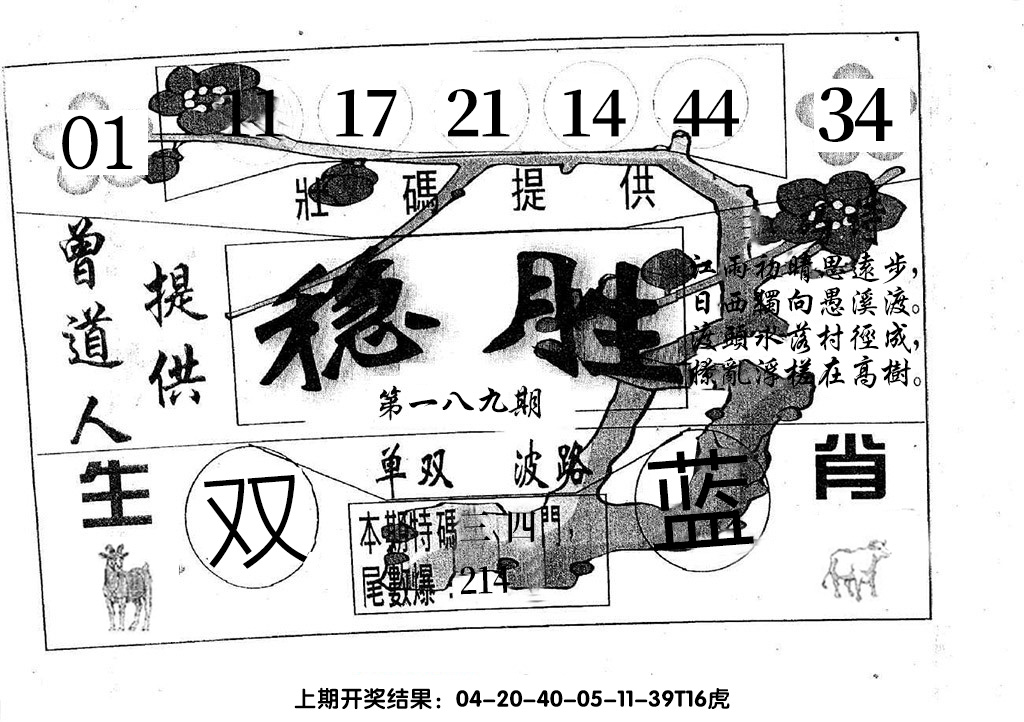 01 11 17 21 14 44 34
壯碼提供
曾道人
提供
稳胜
第一八九期
江雨初晴思遠步，
日西獨向愚溪渡。
渡頭水落村徑成，
撩亂浮槎在高樹。
单双 波路
生肖
双
蓝
本期特碼三、四門，
尾數爆：214
上期开奖结果：04-20-40-05-11-39T16虎